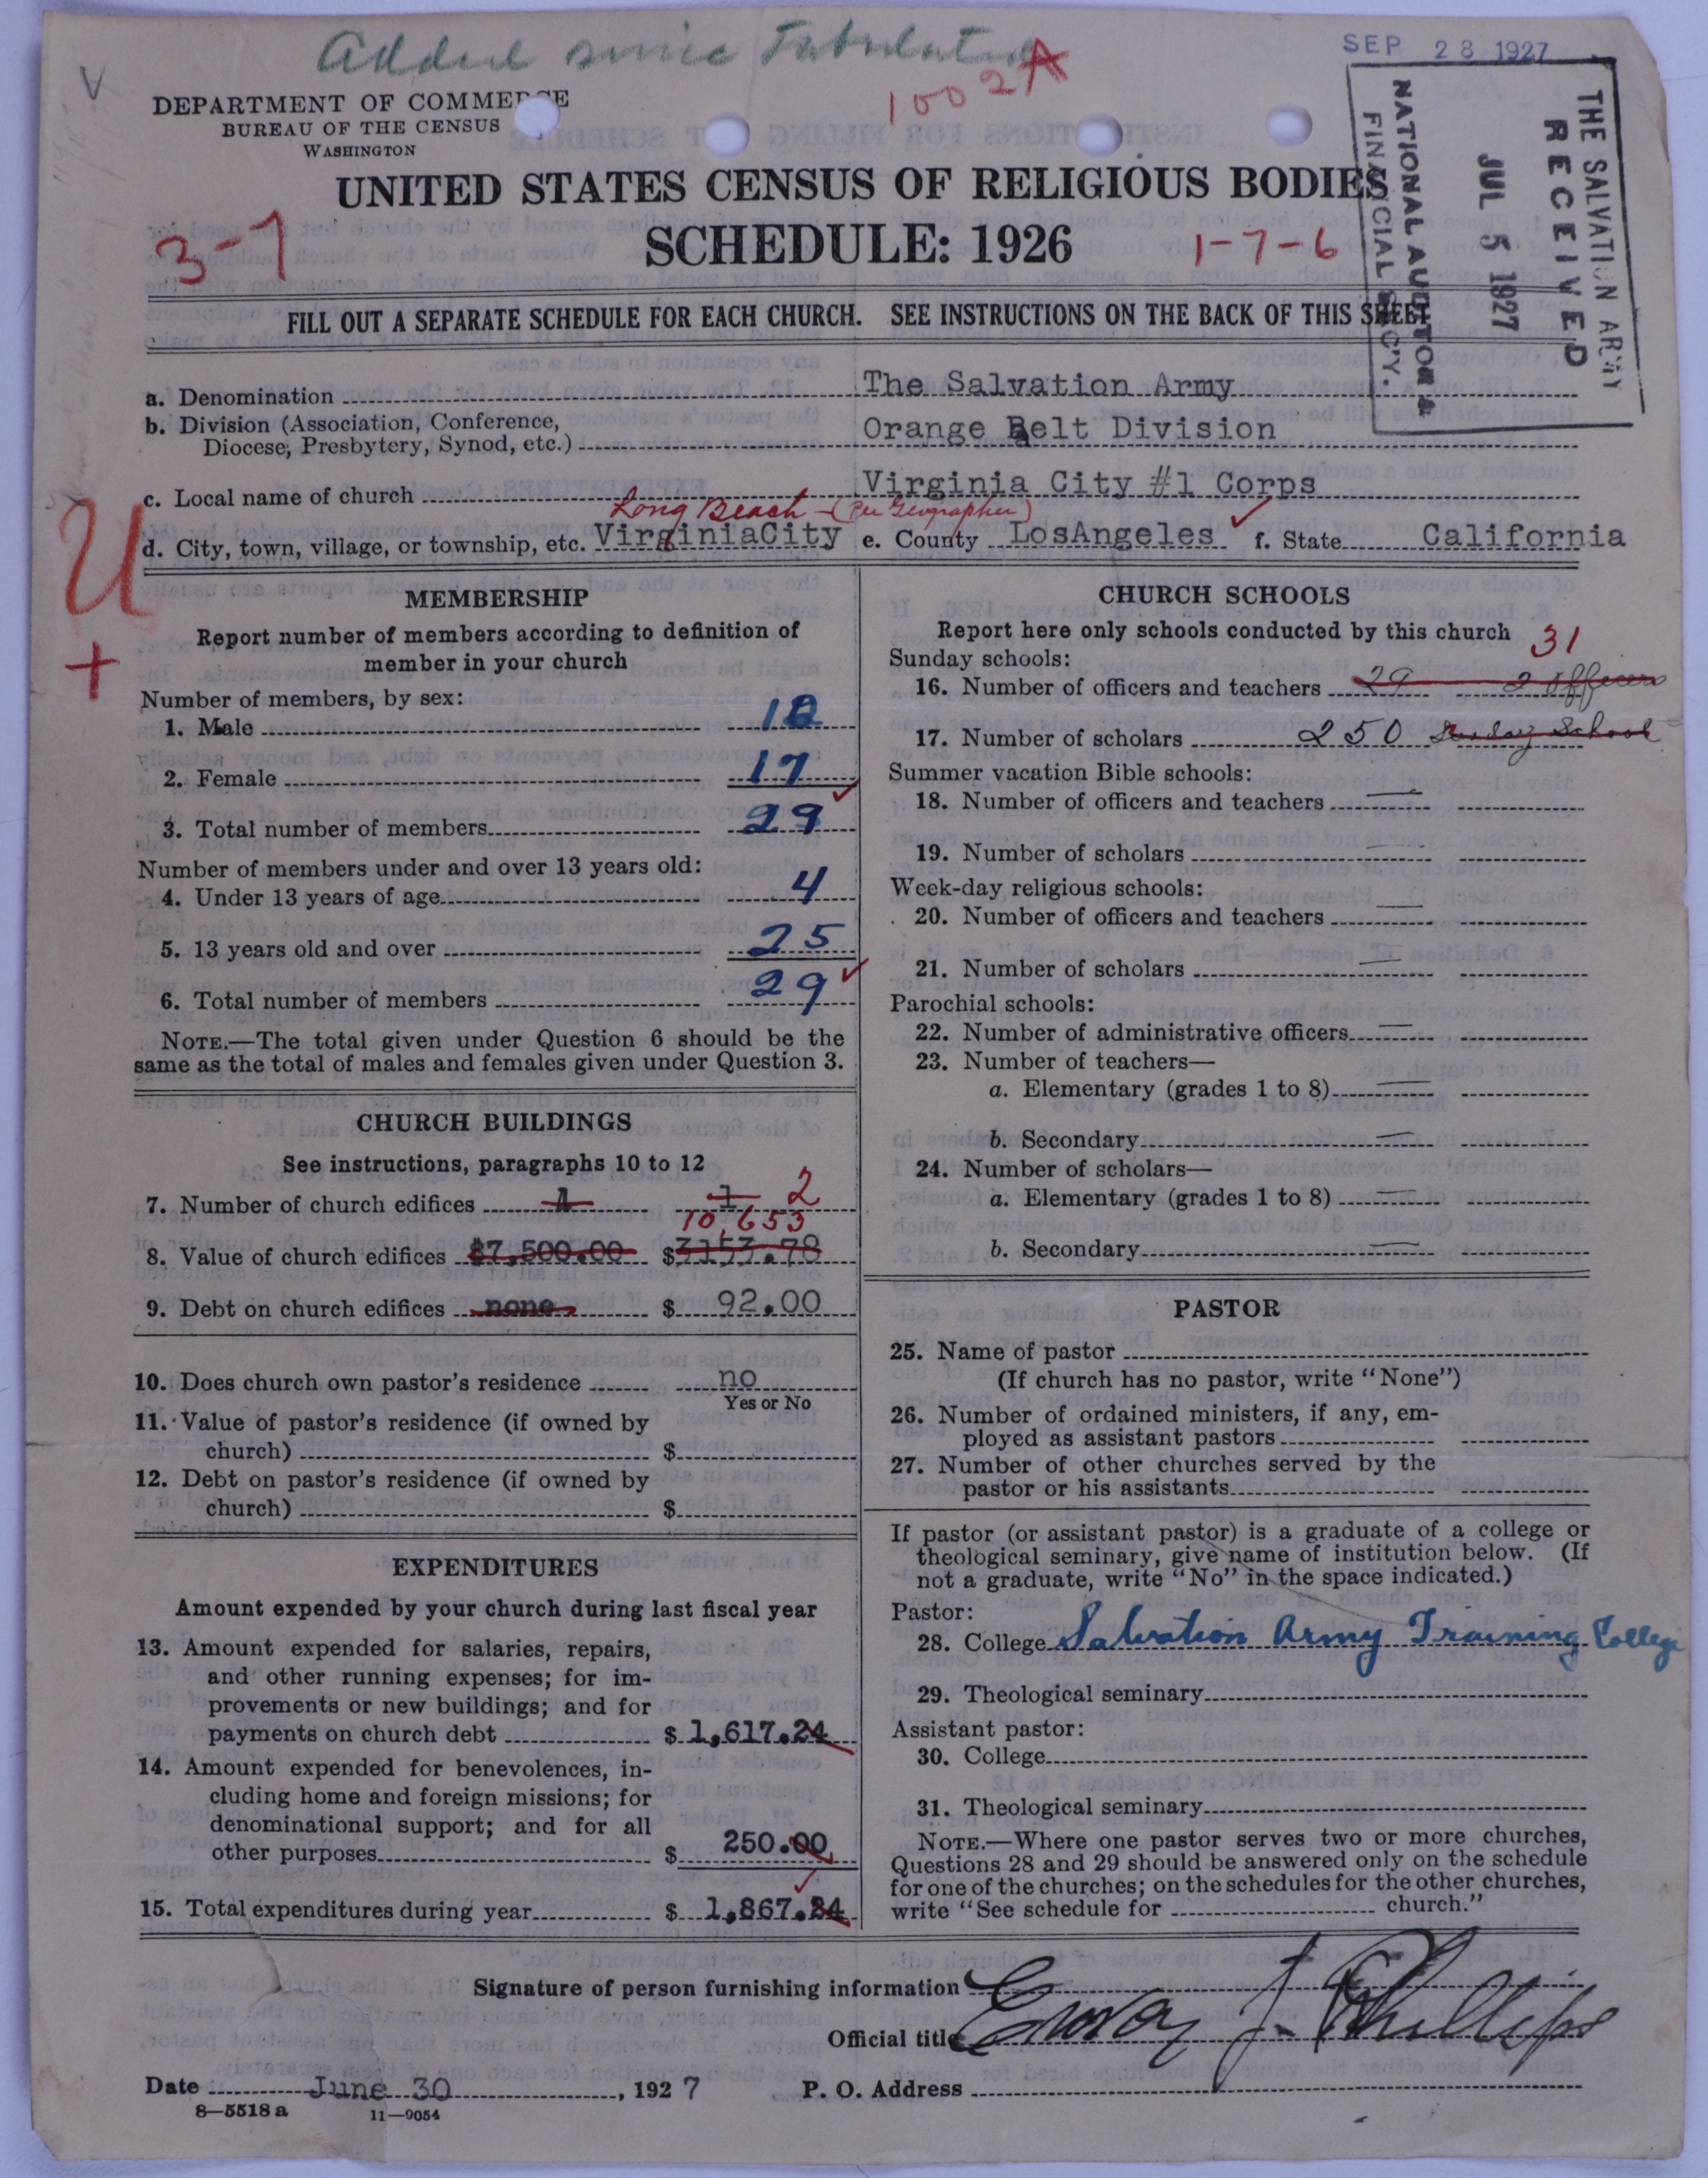 Added since Tabulated
1002A
SEP 28 1927
THE SALVATION ARMY
RECEIVED
JUL 5 1927
NATIONAL AUDITOR &
FINANCIAL SECY.
DEPARTMENT OF COMMERCE
BUREAU OF THE CENSUS
WASHINGTON
UNITED STATES CENSUS OF RELIGIOUS BODIES
SCHEDULE: 1926
3-7
1-7-6
FILL OUT A SEPARATE SCHEDULE FOR EACH CHURCH. SEE INSTRUCTIONS ON THE BACK OF THIS SHEET
a. Denomination The Salvation Army
b. Division (Association, Conference,
Diocese, Presbytery, Synod, etc.) Orange Belt Division
c. Local name of church Virginia City #1 Corps
Long Beach - (Per Geographer)
d. City, town, village, or township, etc. VirginiaCity e. County LosAngeles f. State California
U
+
MEMBERSHIP
Report number of members according to definition of
member in your church
Number of members, by sex:
1. Male 12
2. Female 17
3. Total number of members 29
Number of members under and over 13 years old:
4. Under 13 years of age 4
5. 13 years old and over 25
6. Total number of members 29
NOTE.—The total given under Question 6 should be the
same as the total of males and females given under Question 3.
CHURCH BUILDINGS
See instructions, paragraphs 10 to 12
7. Number of church edifices 1 1 2
10,653
8. Value of church edifices $7,500.00 $3153.78
9. Debt on church edifices none $ 92.00
10. Does church own pastor's residence no
Yes or No
11. Value of pastor's residence (if owned by
church) $
12. Debt on pastor's residence (if owned by
church) $
EXPENDITURES
Amount expended by your church during last fiscal year
13. Amount expended for salaries, repairs,
and other running expenses; for im-
provements or new buildings; and for
payments on church debt $ 1,617.24
14. Amount expended for benevolences, in-
cluding home and foreign missions; for
denominational support; and for all
other purposes $ 250.00
15. Total expenditures during year $ 1,867.24
CHURCH SCHOOLS
Report here only schools conducted by this church
31
Sunday schools:
16. Number of officers and teachers 29 2 officers
17. Number of scholars 250 Sunday School
Summer vacation Bible schools:
18. Number of officers and teachers —
19. Number of scholars —
Week-day religious schools:
20. Number of officers and teachers —
21. Number of scholars —
Parochial schools:
22. Number of administrative officers —
23. Number of teachers—
a. Elementary (grades 1 to 8) —
b. Secondary —
24. Number of scholars—
a. Elementary (grades 1 to 8) —
b. Secondary —
PASTOR
25. Name of pastor
(If church has no pastor, write "None")
26. Number of ordained ministers, if any, em-
ployed as assistant pastors
27. Number of other churches served by the
pastor or his assistants
If pastor (or assistant pastor) is a graduate of a college or
theological seminary, give name of institution below. (If
not a graduate, write "No" in the space indicated.)
Pastor:
28. College Salvation Army Training College
29. Theological seminary
Assistant pastor:
30. College
31. Theological seminary
NOTE.—Where one pastor serves two or more churches,
Questions 28 and 29 should be answered only on the schedule
for one of the churches; on the schedules for the other churches,
write "See schedule for church."
Signature of person furnishing information
Official title J. Phillips
Date June 30, 1927 P. O. Address
8—5518 a 11—9054